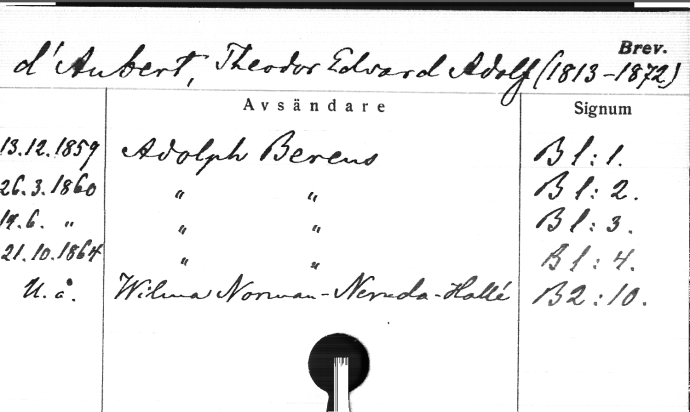 Brev.
d'Aubert, Theodor Edvard Adolf (1813-1872)
Avsändare Signum
13.12.1859 Adolph Berens B1:1.
26.3.1860 " " B1:2.
19.6. " " " B1:3.
21.10.1864 " " B1:4.
U.å. Wilma Norman-Neruda-Hallé B2:10.